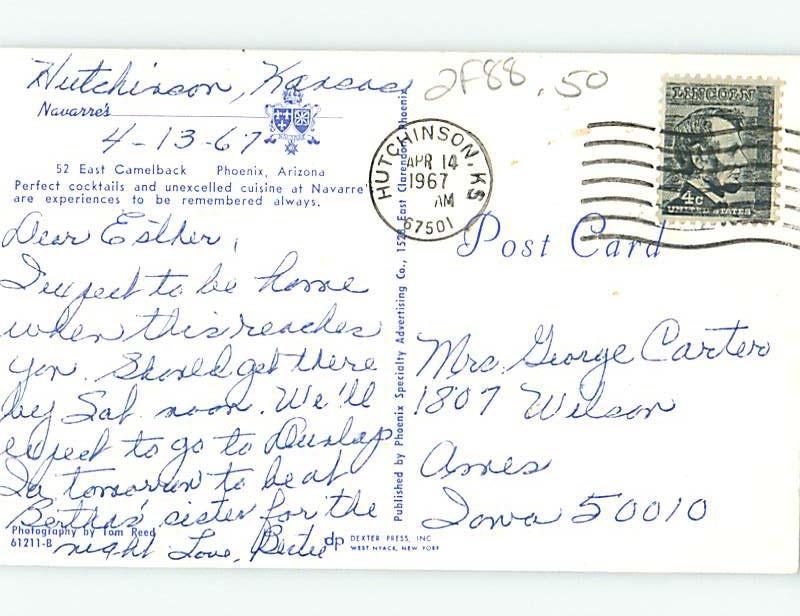 Hutchinson, Kansas
Navarre's
4-13-67
52 East Camelback Phoenix, Arizona
Perfect cocktails and unexcelled cuisine at Navarre'
are experiences to be remembered always.
Dear Esther,
I expect to be home
when this reaches
you. Should get there
by Sat. noon. We'll
expect to go to Dunlap
Ia tomorrow to be at
Bertha's sister for the
night Love, Bertie
Photography by Tom Reed
61211-B
Published by Phoenix Specialty Advertising Co., 1521 East Clarendon, Phoenix
dp DEXTER PRESS, INC
WEST NYACK, NEW YORK
2F88 .50
HUTCHINSON, KS
APR 14
1967
AM
67501
LINCOLN
4c
UNITED STATES
Post Card
Mrs. George Carter
1807 Wilson
Ames
Iowa 50010